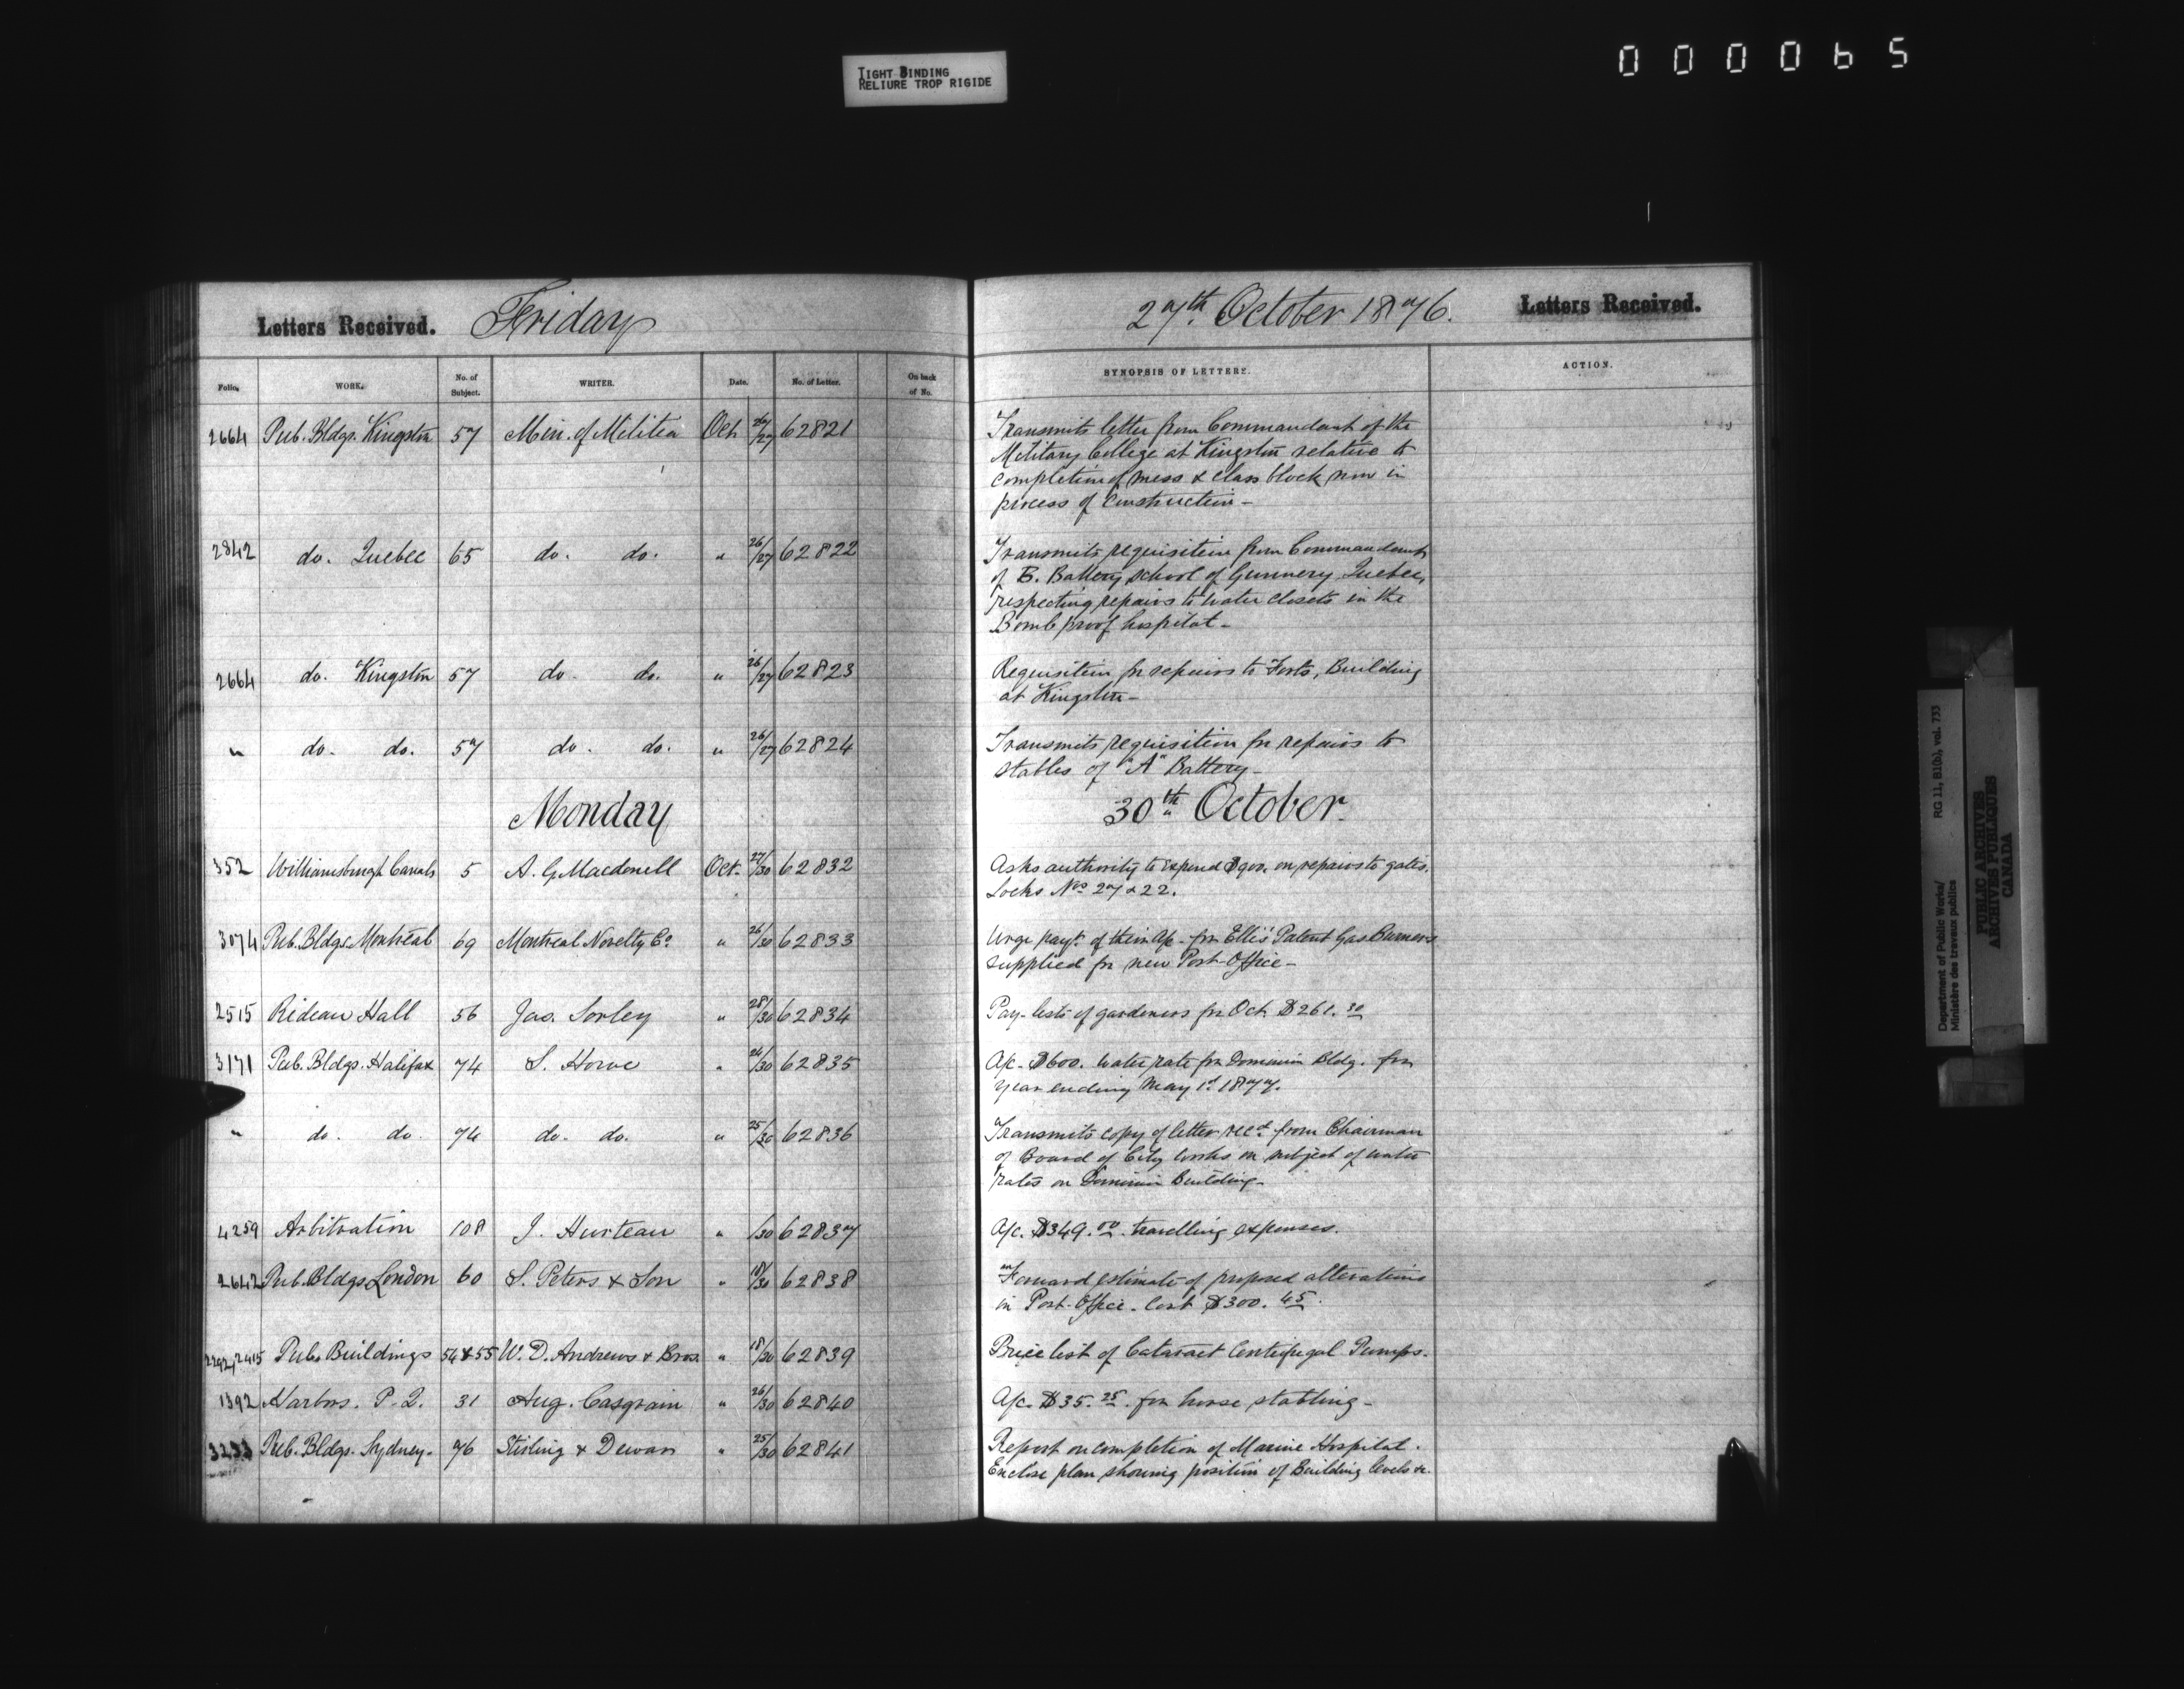 TIGHT BINDING
RELIURE TROP RIGIDE
000065
Letters Received. Friday 27th October 1876. Letters Received.
Folio. WORK. No. of Subject. WRITER. Date. No. of Letter. On back of No. SYNOPSIS OF LETTERS. ACTION.
2664 Pub. Bldgs. Kingston 57 Min. of Militia Oct 26/27 62821 Transmits letter from Commandant of the
Military College at Kingston relative to
completion of mess & class block now in
process of construction -
2842 do. Quebec 65 do. do. " 26/27 62822 Transmits requisition from Commandant
of B. Battery school of Gunnery Quebec,
respecting repairs to water closets in the
Bomb proof hospital -
2664 do. Kingston 57 do. do. " 26/27 62823 Requisition for repairs to Forts, Building
at Kingston -
" do. do. 57 do. do. " 26/27 62824 Transmits requisition for repairs to
stables of "A" Battery -
Monday 30th October.
352 Williamsburgh Canals 5 A. G. Macdonell Oct. 27/30 62832 Asks authority to expend $900. on repairs to gates.
Locks Nos 27 & 22.
3074 Pub. Bldgs. Montreal 69 Montreal Novelty Co. " 26/30 62833 Urge payt. of their a/c - for Ellis' Patent Gas Burners
supplied for new Post-Office -
2515 Rideau Hall 56 Jas. Sorley " 28/30 62834 Pay-lists of gardeners for Oct. $261.30
3171 Pub. Bldgs. Halifax 74 S. Howe " 24/30 62835 A/c - $600. water rate for Dominion Bldg. for
year ending May 1st 1877.
" do. do. 74 do. do. " 25/30 62836 Transmits copy of letter recd. from Chairman
of Board of City Works on subject of water
rates on Dominion Building -
4259 Arbitration 108 J. Hurteau " /30 62837 A/c. $349.00. travelling expenses.
2642 Pub. Bldgs London 60 S. Peters & Son " 18/30 62838 Forward estimate of proposed alterations
in Post-Office. Cost $300.45.
2292, 2415 Pub. Buildings 54 & 55 W. D. Andrews & Bros. " 18/30 62839 Price list of Cataract Centrifugal Pumps.
1392 Harbors. P. Q. 31 Aug. Casgrain " 26/30 62840 A/c. $35.25. for horse stabling -
3233 Pub. Bldgs. Sydney. 76 Stirling & Dewar " 25/30 62841 Report on completion of Marine Hospital.
Enclose plan showing position of Building levels &c.
Department of Public Works/
Ministère des travaux publics
RG 11, B1(b), vol. 733
PUBLIC ARCHIVES
ARCHIVES PUBLIQUES
CANADA